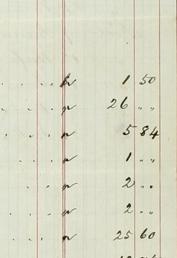 " 1 50
" 26 " "
" 5 84
" 1 " "
" 2 " "
" 2 " "
" 25 60